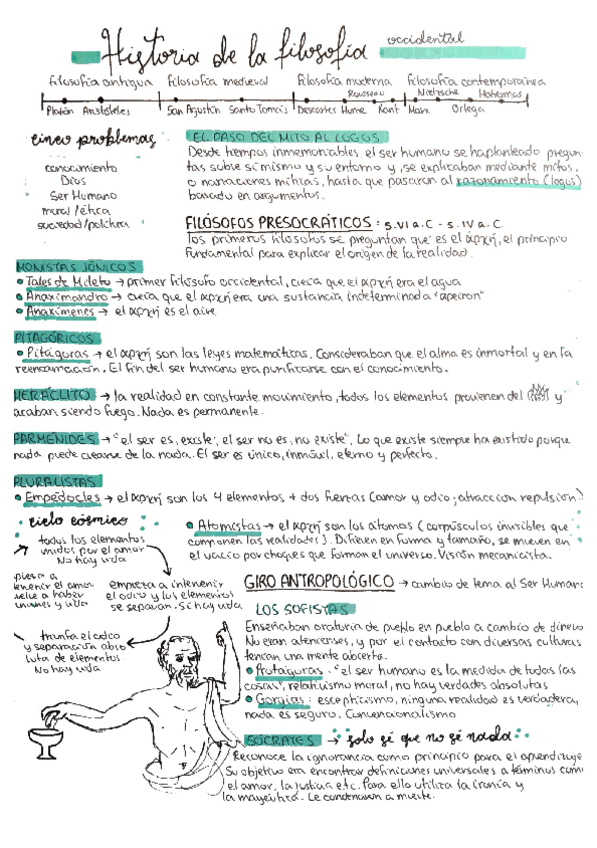 Historia de la filosofía occidental
filosofía antigua filosofía medieval filosofía moderna filosofía contemporánea
Rousseau Nietzsche Habermas
Platón Aristóteles San Agustín Santo Tomás Descartes Hume Kant Marx Ortega
cinco problemas
conocimiento
Dios
Ser Humano
moral/ética
sociedad/política
EL PASO DEL MITO AL LOGOS
Desde tiempos inmemoriables el ser humano se ha planteado pregun-
tas sobre sí mismo y su entorno y, se explicaban mediante mitos,
o narraciones míticas, hasta que pasaron al razonamiento (logos)
basado en argumentos.
FILÓSOFOS PRESOCRÁTICOS: s.VI a.C - s.IV a.C
los primeros filósofos se preguntan que es el ἀρχή, el principio
fundamental para explicar el origen de la realidad.
MONISTAS JÓNICOS
• Tales de Mileto → primer filósofo occidental, creía que el ἀρχή era el agua
• Anaximandro → creía que el ἀρχή era una sustancia indeterminada "apeiron"
• Anaxímenes → el ἀρχή es el aire
PITAGÓRICOS
• Pitágoras → el ἀρχή son las leyes matemáticas. Consideraban que el alma es inmortal y en la
reencarnación. El fin del ser humano era purificarse con el conocimiento.
HERÁCLITO → la realidad en constante movimiento, todos los elementos provienen del y
acaban siendo fuego. Nada es permanente.
PARMÉNIDES → "el ser es, existe; el ser no es, no existe". Lo que existe siempre ha existido porque
nada puede crearse de la nada. El ser es único, inmóvil, eterno y perfecto.
PLURALISTAS
• Empédocles → el ἀρχή son los 4 elementos + dos fuerzas (amor y odio; atracción repulsión)
ciclo cósmico
todos los elementos
unidos por el amor
No hay vida
empieza a intervenir
el odio y los elementos
se separan. Si hay vida
triunfa el odio
y separación abso
luta de elementos
No hay vida
vuelve a haber
uniones y vida
• Atomistas → el ἀρχή son los átomos (corpúsculos invisibles que
componen las realidades). Difieren en forma y tamaño, se mueven en
el vacío por choques que forman el universo. Visión mecanicista.
GIRO ANTROPOLÓGICO → cambio de tema al Ser Humano
LOS SOFISTAS
Enseñaban oratoria de pueblo en pueblo a cambio de dinero
No eran atenienses, y por el contacto con diversas culturas
tenían una mente abierta.
• Protágoras: "el ser humano es la medida de todas las
cosas", relativismo moral, no hay verdades absolutas
• Gorgias: escepticismo, ninguna realidad es verdadera,
nada es seguro. Convencionalismo
SÓCRATES → solo sé que no sé nada
Reconoce la ignorancia como principio para el aprendizaje
Su objetivo era encontrar definiciones universales a términos com
el amor, la justicia etc. Para ello utiliza la ironía y
la mayéutica. Le condenaron a muerte.